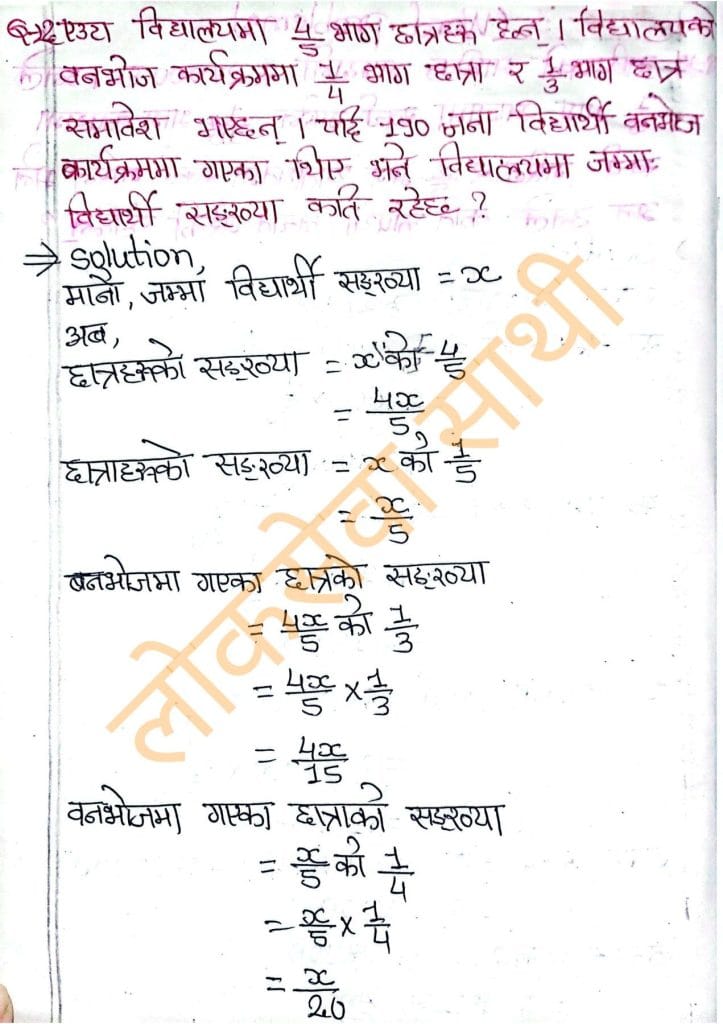 Q.2 एउटा विद्यालयमा 4/5 भाग छात्रहरू हुन्। विद्यालयको
वनभोज कार्यक्रममा 1/4 भाग छात्रा र 1/3 भाग छात्र
समावेश भएछन्। यदि 190 जना विद्यार्थी वनभोज
कार्यक्रममा गएका थिए भने विद्यालयमा जम्मा
विद्यार्थी सङ्ख्या कति रहेछ?
⇒ Solution,
मानौं, जम्मा विद्यार्थी सङ्ख्या = x
अब,
छात्रहरूको सङ्ख्या = x को 4/5
= 4x/5
छात्राहरूको सङ्ख्या = x को 1/5
= x/5
बनभोजमा गएका छात्रको सङ्ख्या
= 4x/5 को 1/3
= 4x/5 × 1/3
= 4x/15
वनभोजमा गएका छात्राको सङ्ख्या
= x/5 को 1/4
= x/5 × 1/4
= x/20
लोकसेवा साथी